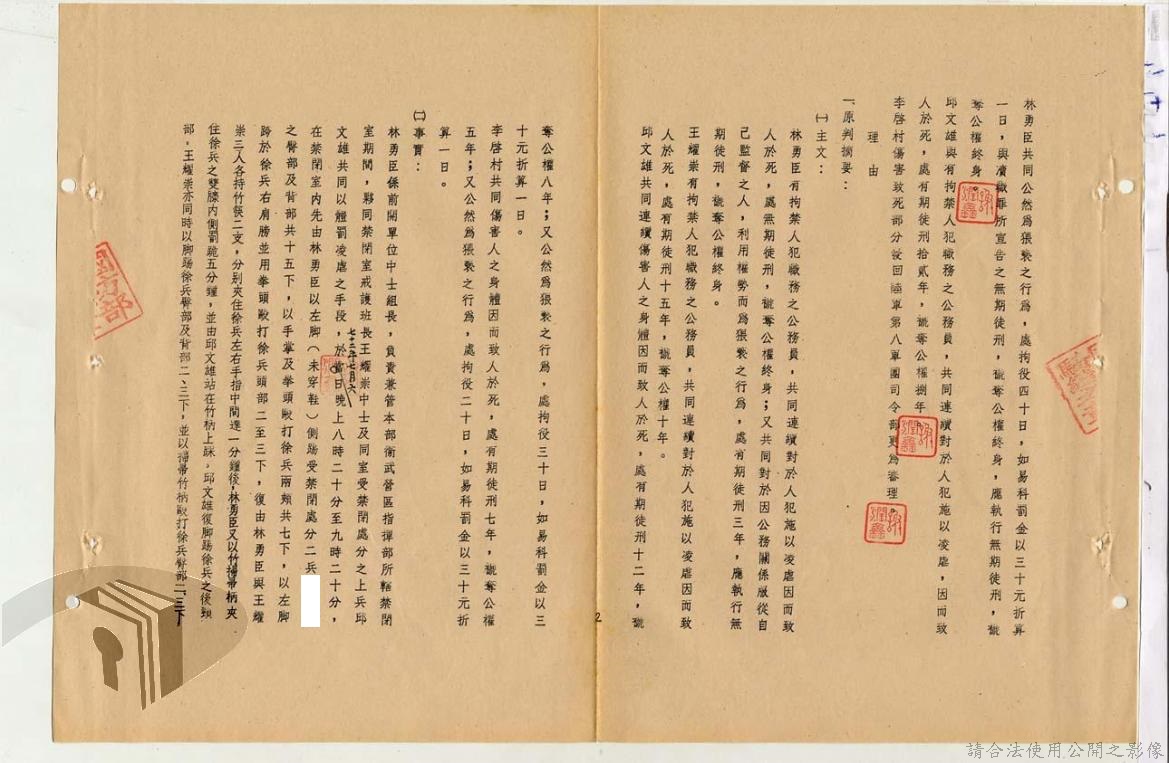 林勇臣共同公然為猥褻之行為，處拘役四十日，如易科罰金以三十元折算
一日，與瀆職罪所宣告之無期徒刑，褫奪公權終身，應執行無期徒刑，褫
奪公權終身。
邱文雄與有拘禁人犯職務之公務員，共同連續對於人犯施以凌虐，因而致
人於死，處有期徒刑拾貳年，褫奪公權捌年。
李啓村傷害致死部分發回陸軍第八軍團司令部更為審理。
理由
一、原判摘要：
㈠主文：
林勇臣有拘禁人犯職務之公務員，共同連續對於人犯施以凌虐因而致
人於死，處無期徒刑，褫奪公權終身；又共同對於因公務關係服從自
己監督之人，利用權勢而為猥褻之行為，處有期徒刑三年，應執行無
期徒刑，褫奪公權終身。
王耀崇有拘禁人犯職務之公務員，共同連續對於人犯施以凌虐因而致
人於死，處有期徒刑十五年，褫奪公權十年。
邱文雄共同連續傷害人之身體因而致人於死，處有期徒刑十二年，褫
2
奪公權八年；又公然為猥褻之行為，處拘役三十日，如易科罰金以三
十元折算一日。
李啓村共同傷害人之身體因而致人於死，處有期徒刑七年，褫奪公權
五年；又公然為猥褻之行為，處拘役二十日，如易科罰金以三十元折
算一日。
㈡事實：
林勇臣係前開單位中士組長，負責兼管本部衛武營區指揮部所轄禁閉
室期間，夥同禁閉室戒護班長王耀崇中士及同室受禁閉處分之上兵邱
文雄共同以體罰凌虐之手段，於
七十二年七月六
日晚上八時二十分至九時二十分，
在禁閉室內先由林勇臣以左脚（未穿鞋）側踢受禁閉處分二兵
之臀部及背部共十五下，以手掌及拳頭毆打徐兵兩頰共七下，以左脚
跨於徐兵右肩膀並用拳頭毆打徐兵頭部二至三下，復由林勇臣與王耀
崇三人各持竹筷二支，分別夾住徐兵左右手指中間達一分鐘後，林勇臣又以竹掃帚柄夾
住徐兵之雙膝內側罰跪五分鐘，並由邱文雄站在竹柄上踩。邱文雄復脚踢徐兵之後頸
部，王耀崇亦同時以脚踢徐兵臀部及背部二、三下，並以掃帚竹柄毆打徐兵臀部二、三下
請合法使用公開之影像